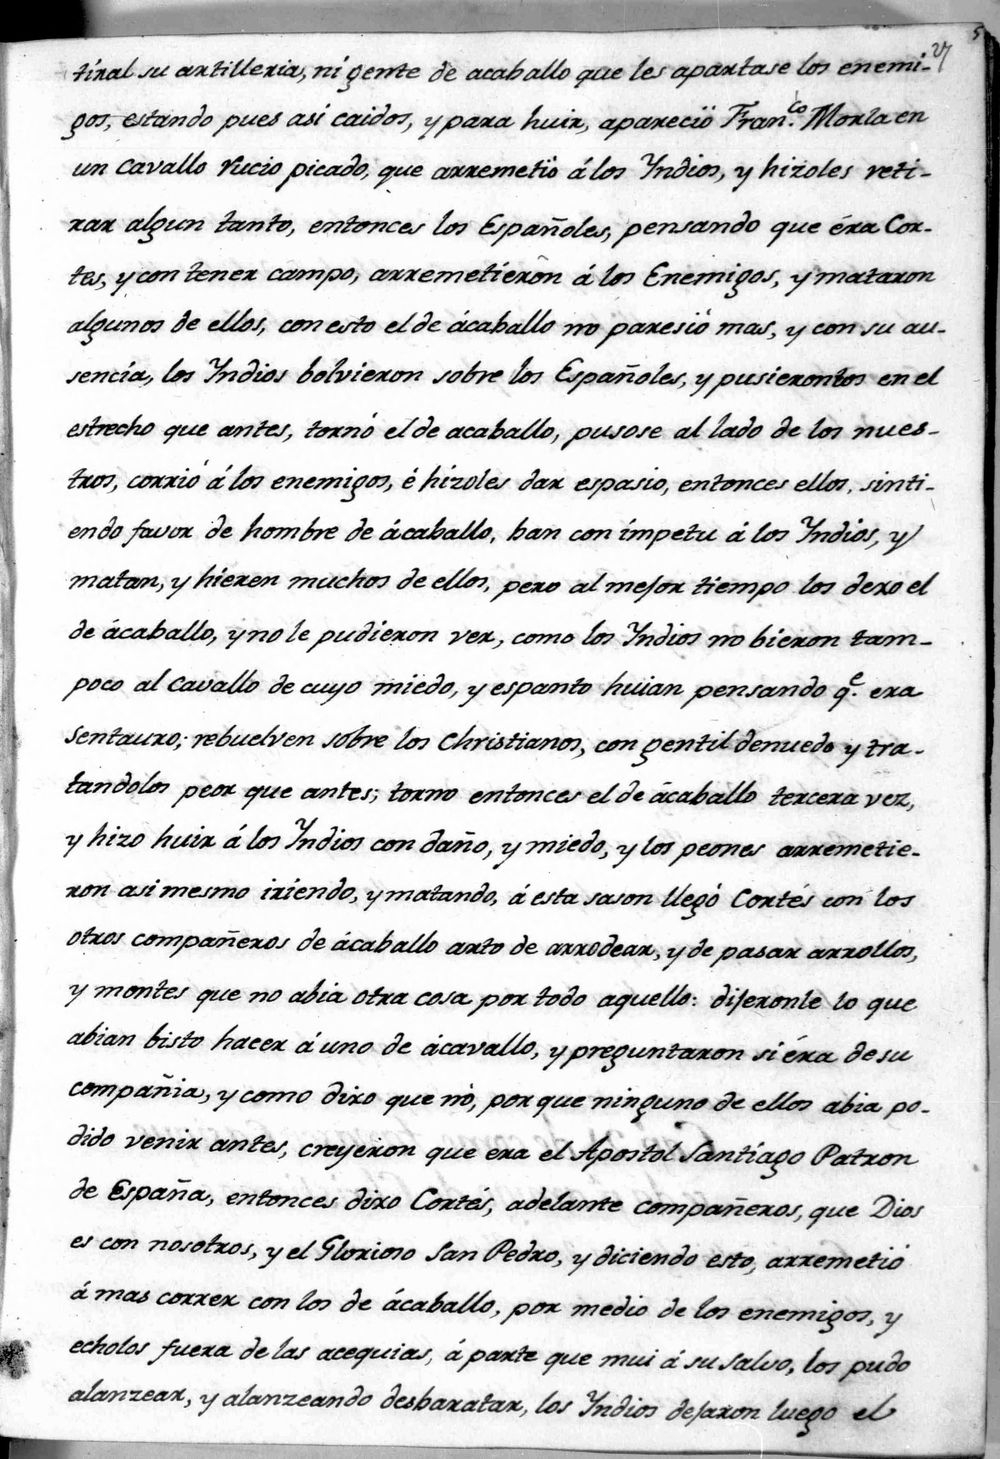 tiral su artilleria, ni gente de acaballo que les apartase los enemi-
gos, estando pues asi caidos, y para huir, apareció Fran.co Morla en
un cavallo rucio picado, que arremetió á los Yndios, y hizoles reti-
rar algun tanto, entonces los Españoles, pensando que éra Cor-
tes, y con tener campo, arremetieron á los Enemigos, y mataron
algunos de ellos, con esto el de ácaballo no paresió mas, y con su au-
sencia, los Yndios bolvieron sobre los Españoles, y pusieronlos en el
estrecho que antes, tornó el de acaballo, pusose al lado de los nues-
tros, corrió á los enemigos, é hizoles dar espasio, entonces ellos, sinti-
endo favor de hombre de ácaballo, ban con impetu á los Yndios, y
matan, y hieren muchos de ellos, pero al mejor tiempo los dexo el
de ácaballo, y no le pudieron ver, como los Yndios no bieron tam-
poco al cavallo de cuyo miedo, y espanto huian pensando q.e era
Sentauro; rebuelven sobre los Christianos, con gentil denuedo y tra-
tandolos peor que antes; torno entonces el de ácaballo tercera vez,
y hizo huir á los Yndios con daño, y miedo, y los peones arremetie-
ron asi mesmo iriendo, y matando, á esta sason llegó Cortés con los
otros compañeros de ácaballo arto de arrodear, y de pasar arrollos,
y montes que no abia otra cosa por todo aquello: dijeronle lo que
abian bisto hacer á uno de ácavallo, y preguntaron si éra de su
compañia, y como dixo que nó, porque ninguno de ellos abia po-
dido venir antes, creyeron que era el Apostol Santiago Patron
de España, entonces dixo Cortés, adelante compañeros, que Dios
es con nosotros, y el Glorioso San Pedro, y diciendo esto, arremetió
á mas correr con los de ácaballo, por medio de los enemigos, y
echolos fuera de las acequias, á parte que mui á su salvo, los pudo
alanzear, y alanzeando desbaratar, los Yndios dejaron luego el